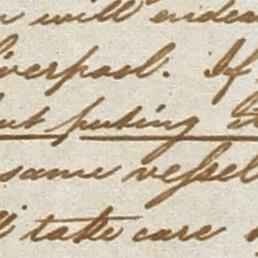 will endea
iverpool. If
but puting
same vessel
take care